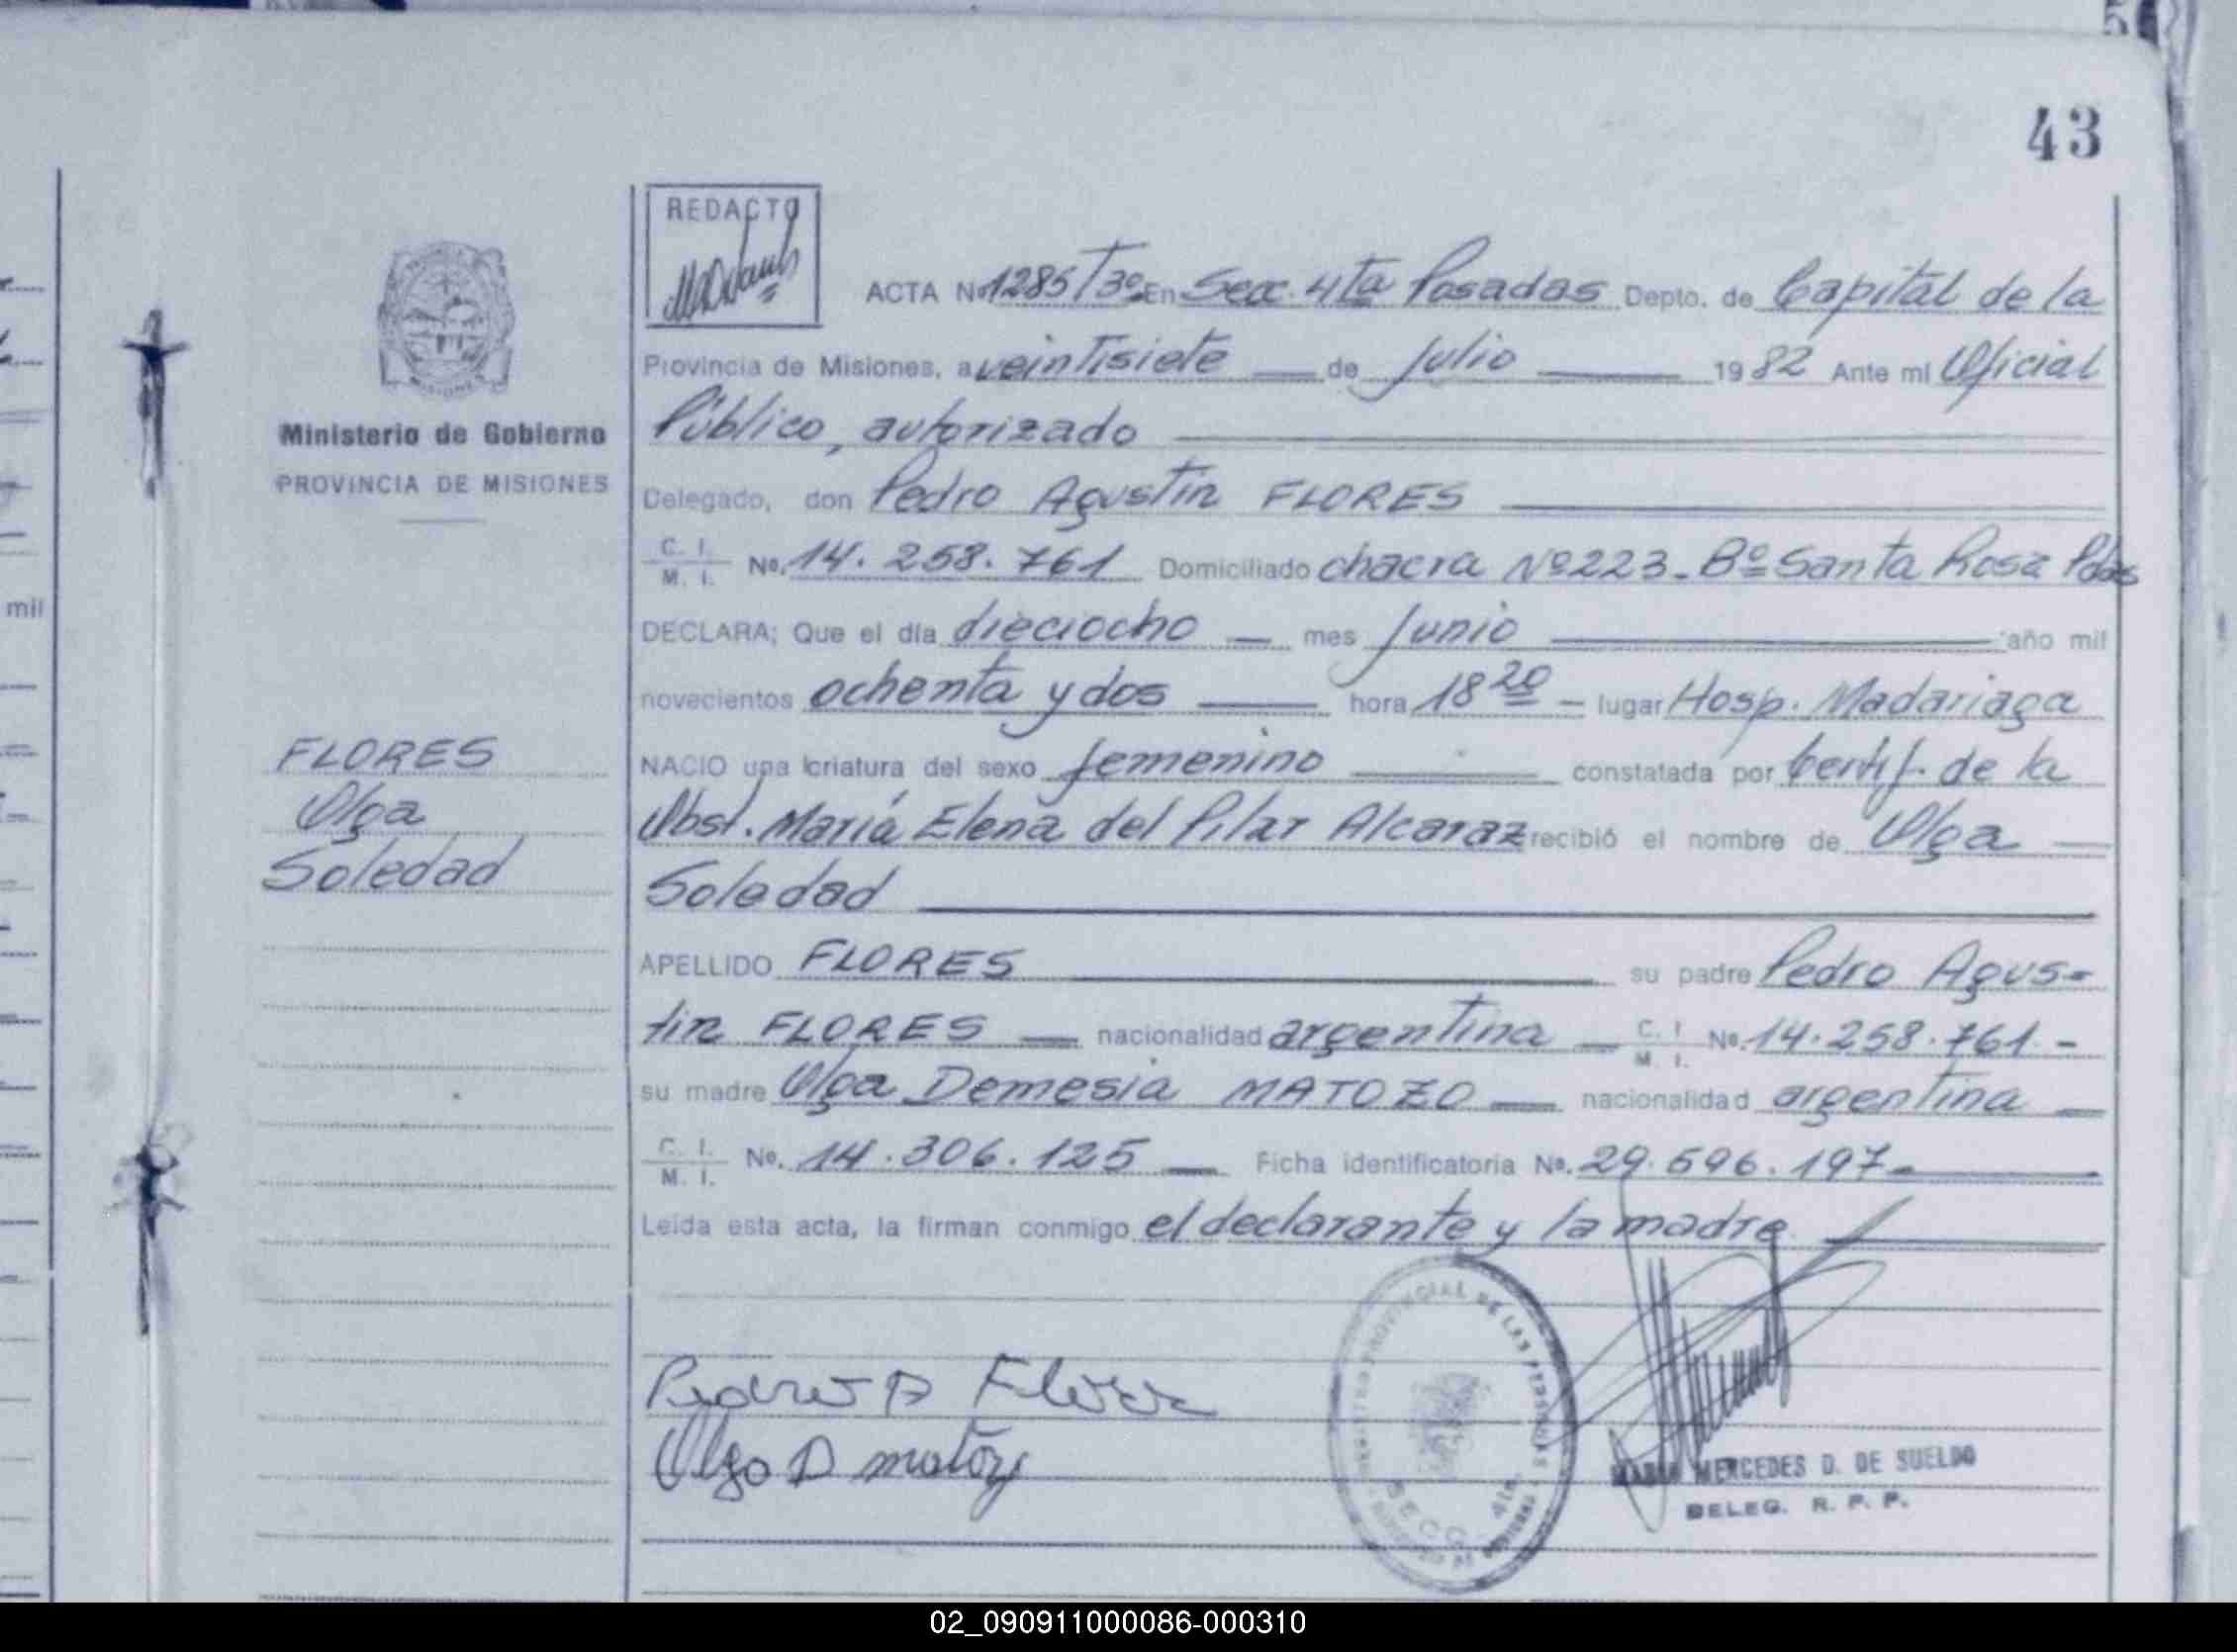 43
REDACTO
ACTA Nº 1285/Tº3º En Secc. 4ta Posadas Depto. de Capital de la
Provincia de Misiones, a veintisiete de julio 1982 Ante mí Oficial
Ministerio de Gobierno
Público, autorizado
PROVINCIA DE MISIONES
Delegado, don Pedro Agustín FLORES
C. I.
M. I. No. 14.258.761 Domiciliado chacra Nº 223-Bº Santa Rosa Pdas
mil
DECLARA; Que el día dieciocho mes junio año mil
novecientos ochenta y dos hora 18 20 lugar Hosp. Madariaga
FLORES
NACIO una criatura del sexo femenino constatada por Certif. de la
Olga
Obst. María Elena del Pilar Alcaraz recibió el nombre de Olga
Soledad
Soledad
APELLIDO FLORES su padre Pedro Agus-
tín FLORES nacionalidad argentina C. I. M. I. No. 14.258.761.-
su madre Olga Demesia MATOZO nacionalidad argentina
C. I.
M. I. No. 14.306.125 Ficha identificatoria No. 29.596.197-
Leída esta acta, la firman conmigo el declarante y la madre
REGISTRO PROVINCIAL DE LAS PERSONAS
SECC. 4ta.
Pedro A Flores
Olga D matoz
MARIA MERCEDES D. DE SUELDO
DELEG. R. P. P.
02_090911000086-000310